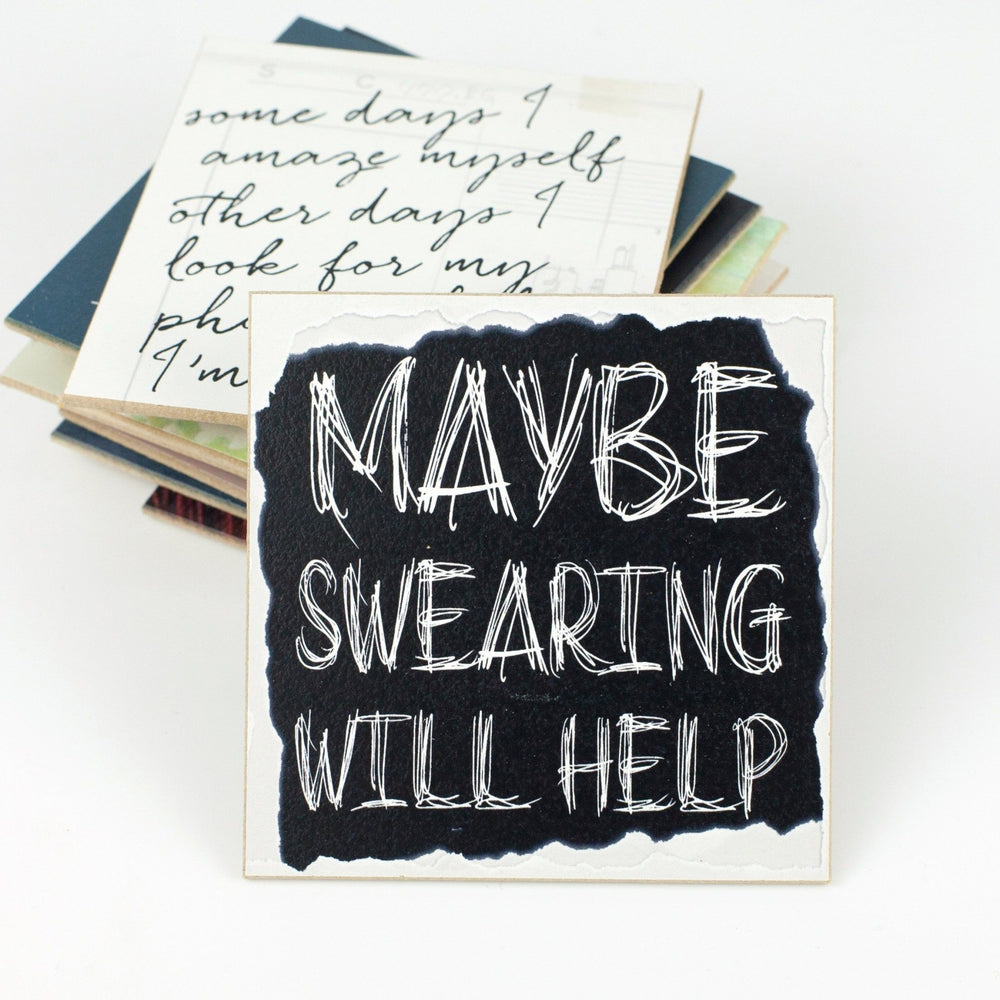 some days I
amaze myself
other days I
look for my
I'm
MAYBE
SWEARING
WILL HELP